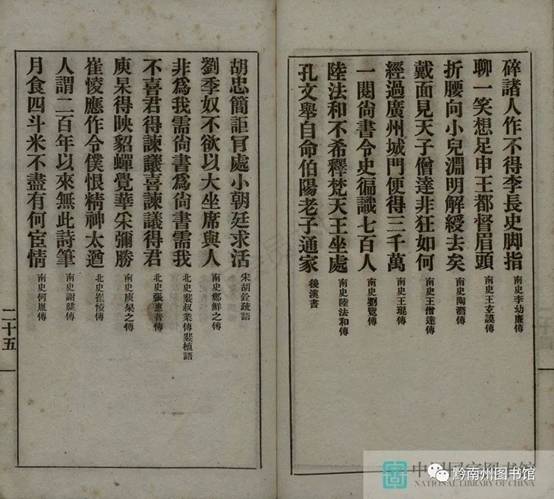 碎諸人作不得李長史脚指 南史李幼廉傳
聊一笑想足申王都督眉頭 南史王玄謨傳
折腰向小兒淵明解綬去矣 南史陶潛傳
戴面見天子僧達非狂如何 南史王僧達傳
經過廣州城門便得三千萬 南史王琨傳
一閱尙書令史徧識七百人 南史劉覽傳
陸法和不希釋梵天王坐處 南史陸法和傳
孔文舉自命伯陽老子通家 後漢書
胡忠簡詎肎處小朝廷求活 宋胡銓疏語
劉季奴不欲以大坐席與人 南史鄭鮮之傳
非爲我需尙書爲尙書需我 北史裴叔業傳裴植語
不喜君得諫議喜諫議得君 北史張惠普傳
庾杲得映貂蟬覺華采彌勝 南史庾杲之傳
崔㥄應作令僕恨精神太遒 北史崔㥄傳
人謂二百年以來無此詩筆 南史謝朓傳
月食四斗米不盡有何宦情 南史何胤傳
二十五
NATIONAL LIBRARY OF CHINA
黔南州图书馆